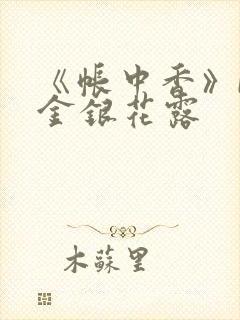 《帐中香》
金银花露
木苏里